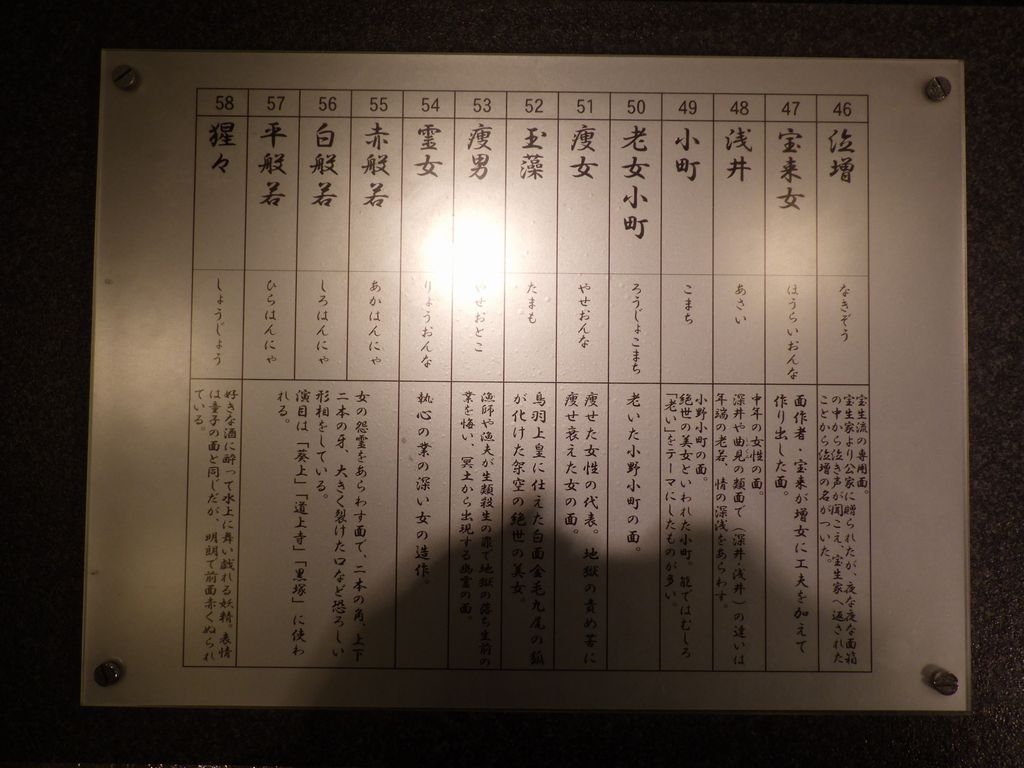 46
泣増
なきぞう
宝生流の専用面。
宝生家より公家に贈られたが、夜な夜な面箱
の中から泣き声が聞こえ、宝生家へ返された
ことから泣増の名がついた。
47
宝来女
ほうらいおんな
面作者・宝来が増女に工夫を加えて
作り出した面。
48
浅井
あさい
中年の女性の面。
深井や曲見の類面で(深井・浅井)の違いは
年端の老若、情の深浅をあらわす。
49
小町
こまち
小野小町の面。
絶世の美女といわれた小町。能ではむしろ
「老い」をテーマにしたものが多い。
50
老女小町
ろうじょこまち
老いた小野小町の面。
51
痩女
やせおんな
痩せた女性の代表。地獄の責め苦に
痩せ衰えた女の面。
52
玉藻
たまも
鳥羽上皇に仕えた白面金毛九尾の狐
が化けた架空の絶世の美女。
53
痩男
やせおとこ
漁師や漁夫が生類殺生の罪で地獄の落ち生前の
業を悔い、冥土から出現する幽霊の面。
54
霊女
りょうおんな
執心の業の深い女の造作。
55
赤般若
あかはんにゃ
56
白般若
しろはんにゃ
57
平般若
ひらはんにゃ
女の怨霊をあらわす面で、二本の角、上下
二本の牙、大きく裂けた口など恐ろしい
形相をしている。
演目は「葵上」「道上寺」「黒塚」に使わ
れる。
58
猩々
しょうじょう
好きな酒に酔って水上に舞い戯れる妖精。表情
は童子の面と同じだが、明朗で前面赤くぬられ
ている。